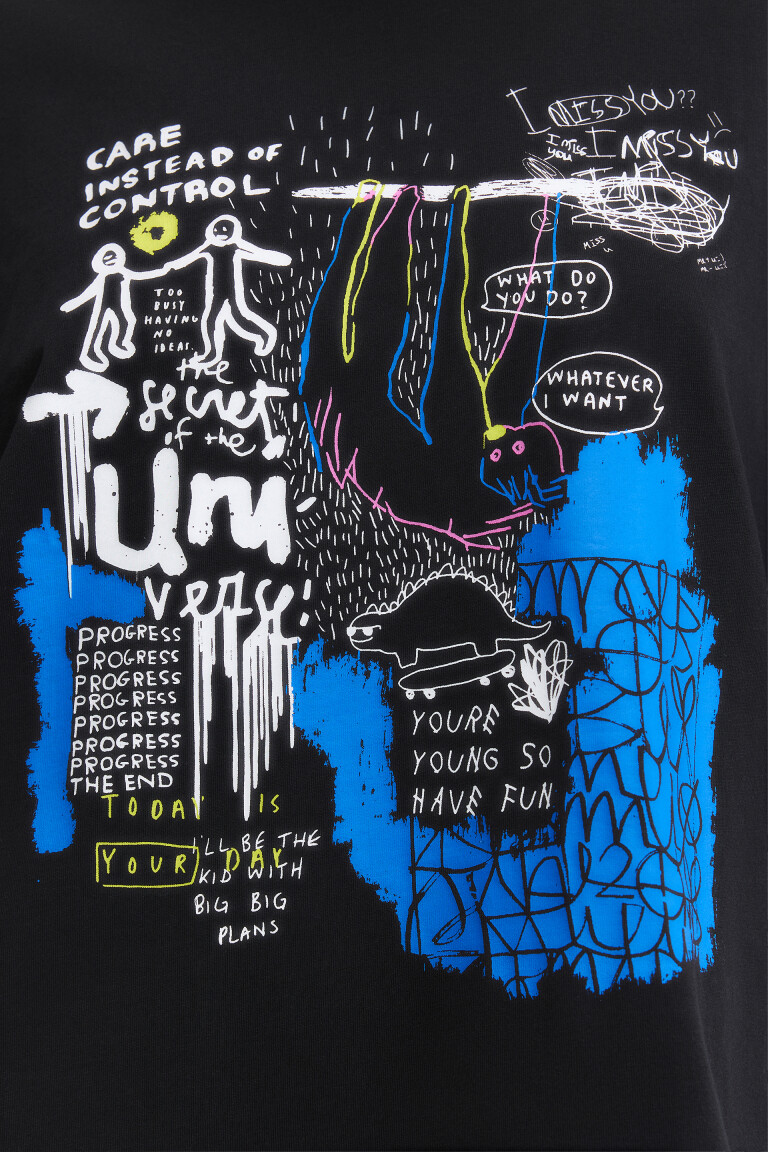 CARE
INSTEAD OF
CONTROL
TOO
BUSY
HAVING
NO
IDEAS.
the
secret
of the
Uni
verse!
PROGRESS
PROGRESS
PROGRESS
PROGRESS
PROGRESS
PROGRESS
PROGRESS
THE END
TODAY IS
YOUR DAY
I'LL BE THE
KID WITH
BIG BIG
PLANS
I MISS YOU??
I MISS
YOU
I MISS YOU
MISS
U
WHAT DO
YOU DO?
WHATEVER
I WANT
YOURE
YOUNG SO
HAVE FUN